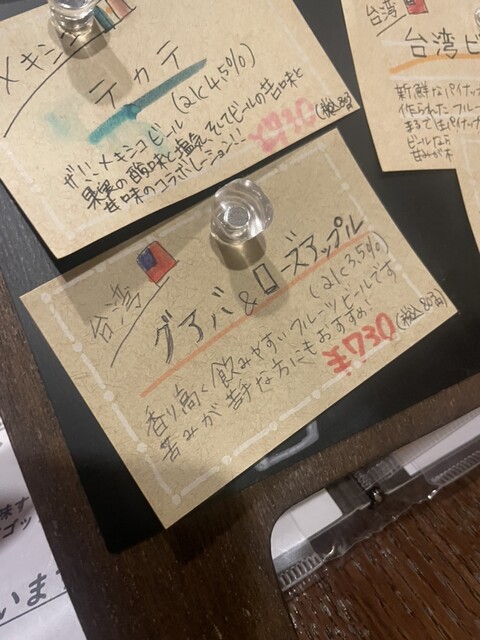 メキシコ
テカテ
(alc4.5%)
ザ!!メキシコビール
果実の酸味と塩気そしてビールの苦味と
甘味のコラボレーション!!
¥730
(税込803)
台湾
グアバ&ローズアップル
(alc3.5%)
香り高く飲みやすいフルーツビールです
苦みが苦手な方にもおすすめ!
¥730(税込803)
台湾
台湾ビ
新鮮なパイナッ
作られたフルー
まるで生パイナッ
ビールなら
甘みが
います